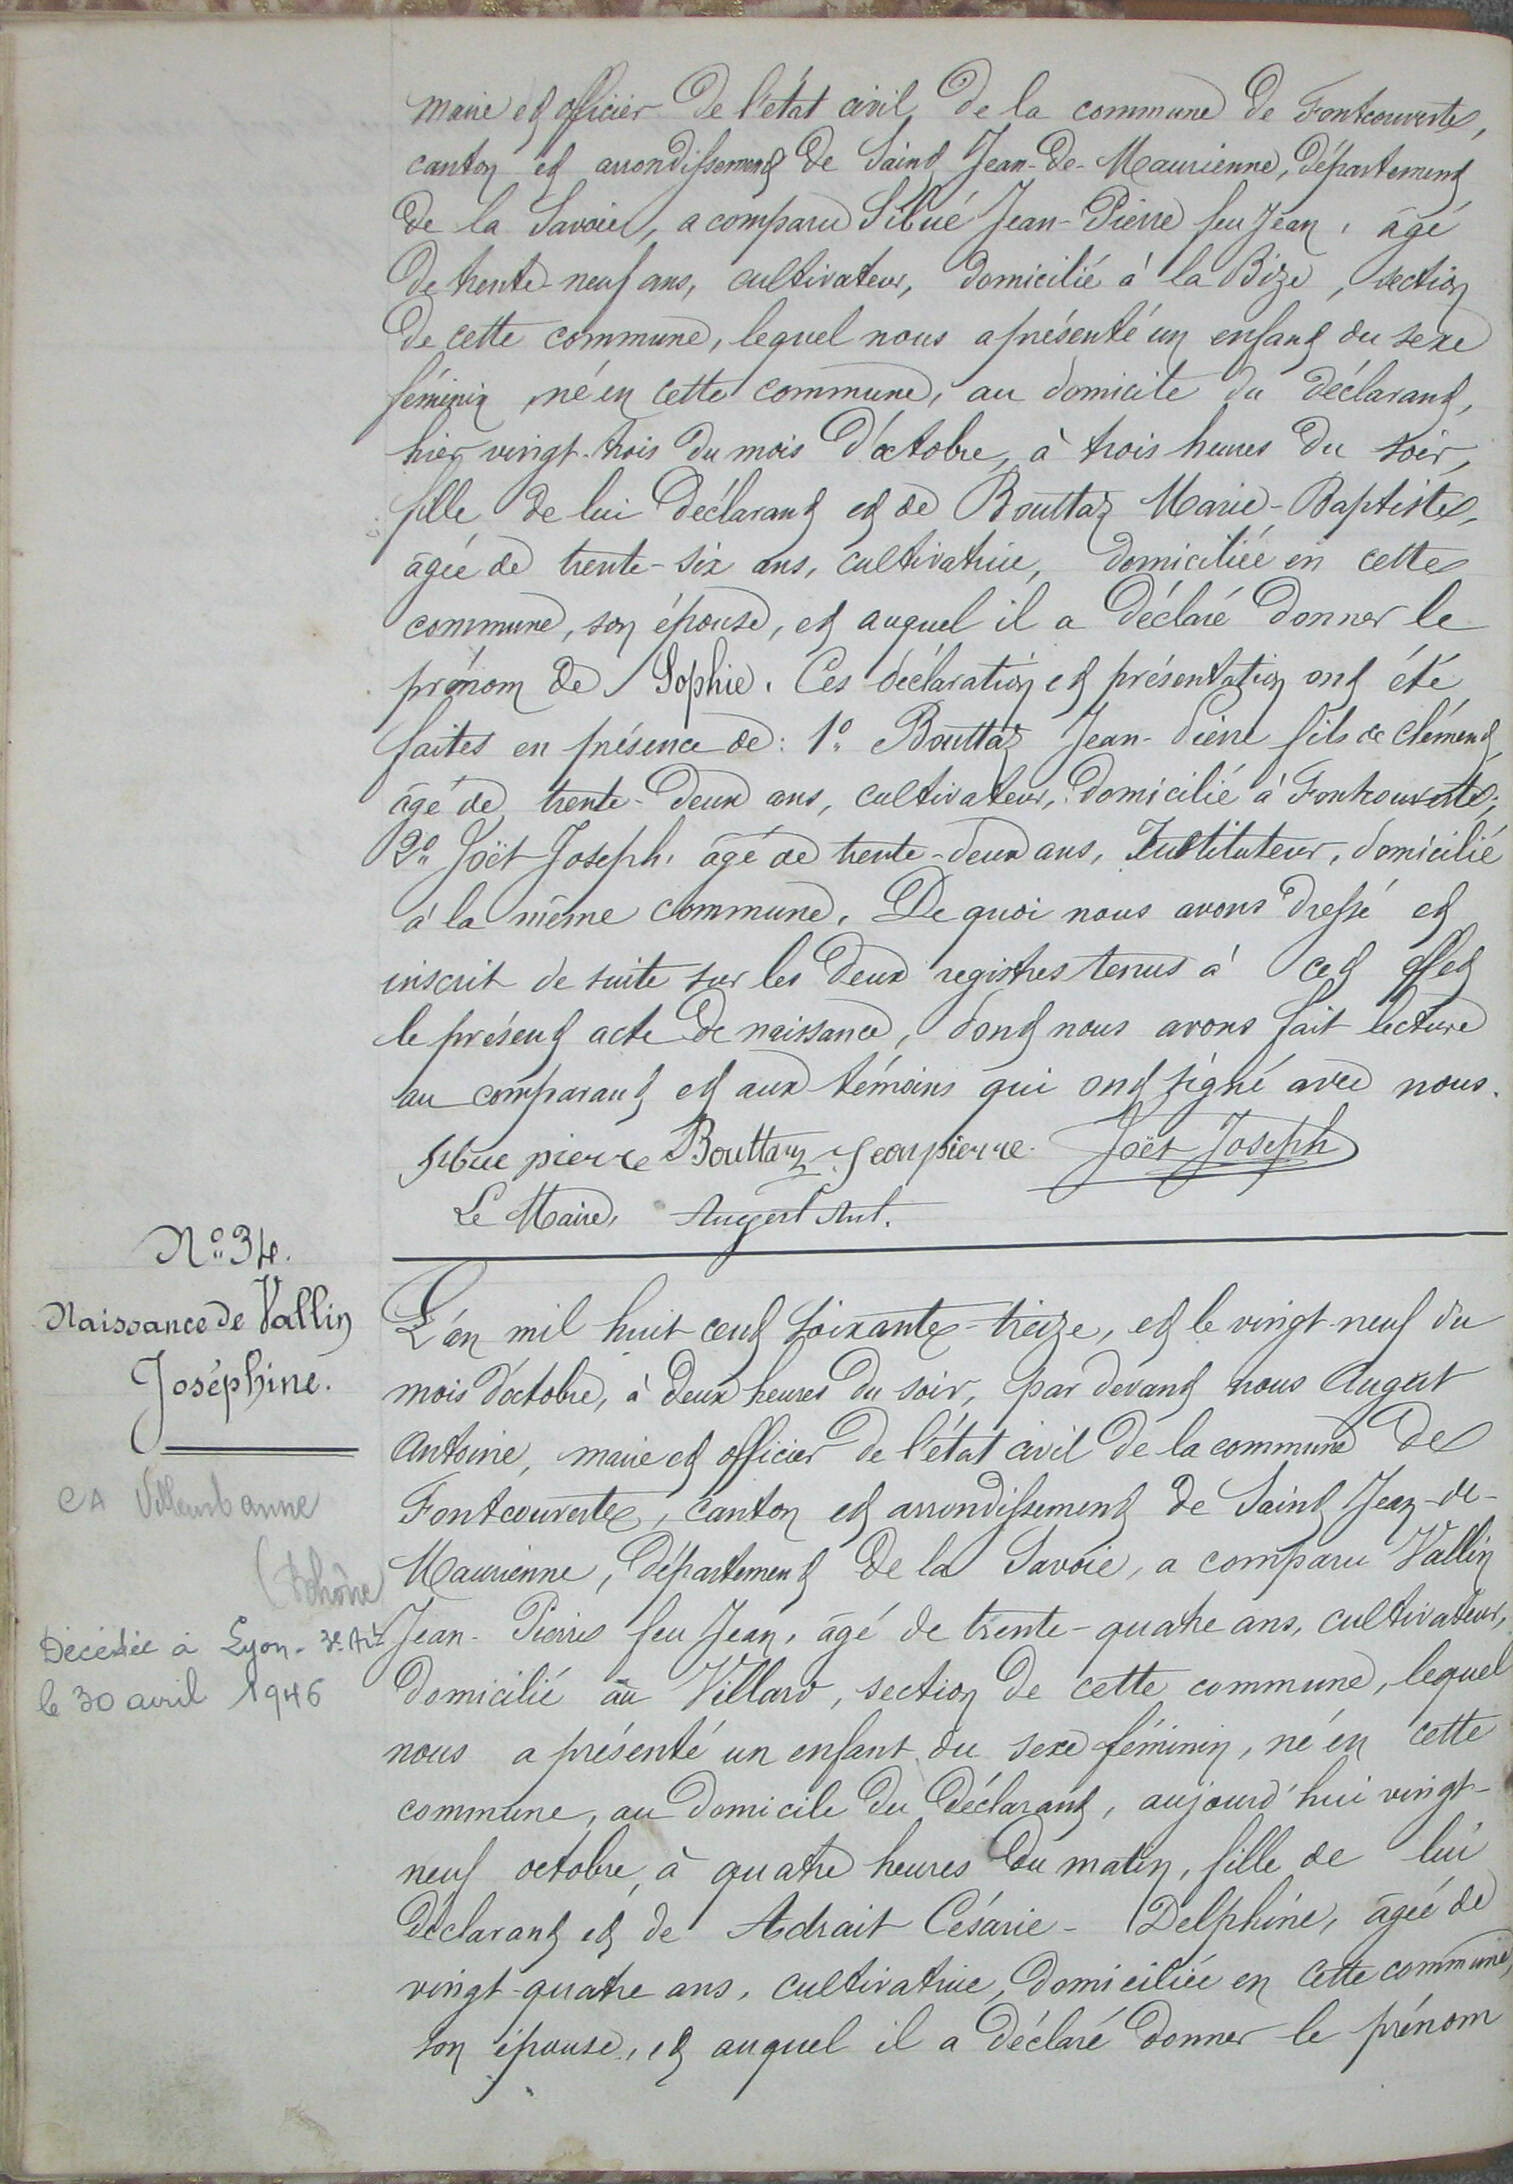 maire et officier de l'état civil de la commune de Fontcouverte,
canton et arrondissement de Saint Jean-de-Maurienne, département
de la Savoie, a comparu Sibué Jean-Pierre feu Jean, âgé
de trente-neuf ans, cultivateur, domicilié à la Bize, section
de cette commune, lequel nous a présenté un enfant du sexe
féminin, né en cette commune, au domicile du déclarant,
hier vingt-trois du mois d'octobre, à trois heures du soir,
fille de lui déclarant et de Bouttaz Marie-Baptiste,
âgée de trente-six ans, cultivatrice, domiciliée en cette
commune, son épouse, et auquel il a déclaré donner le
prénom de Sophie. Ces déclaration et présentation ont été
faites en présence de: 1° Bouttaz Jean-Pierre fils de Clément,
âgé de trente-deux ans, cultivateur, domicilié à Fontcouverte;
2° Joët Joseph, âgé de trente-deux ans, Instituteur, domicilié
à la même commune. De quoi nous avons dressé et
inscrit de suite sur les deux registres tenus à cet effet
le présent acte de naissance, dont nous avons fait lecture
au comparant et aux témoins qui ont signé avec nous.
Sibue pierre Bouttaz Jeanpierre Joët Joseph
Le Maire, Augert Ant.
N° 34.
Naissance de Vallin
Joséphine.
CA Villeurbanne
(Rhône
Décédée à Lyon - 3e Art
le 30 avril 1946
L'an mil huit cent soixante-treize, et le vingt-neuf du
mois d'octobre, à deux heures du soir, par devant nous Augert
Antoine, maire et officier de l'état civil de la commune de
Fontcouverte, canton et arrondissement de Saint Jean-de-
Maurienne, département de la Savoie, a comparu Vallin
Jean-Pierre feu Jean, âgé de trente-quatre ans, cultivateur,
domicilié au Villard, section de cette commune, lequel
nous a présenté un enfant du sexe féminin, né en cette
commune, au domicile du déclarant, aujourd'hui vingt-
neuf octobre, à quatre heures du matin, fille de lui
déclarant et de Adrait Césarie-Delphine, âgée de
vingt-quatre ans, cultivatrice, domiciliée en cette commune,
son épouse, et auquel il a déclaré donner le prénom